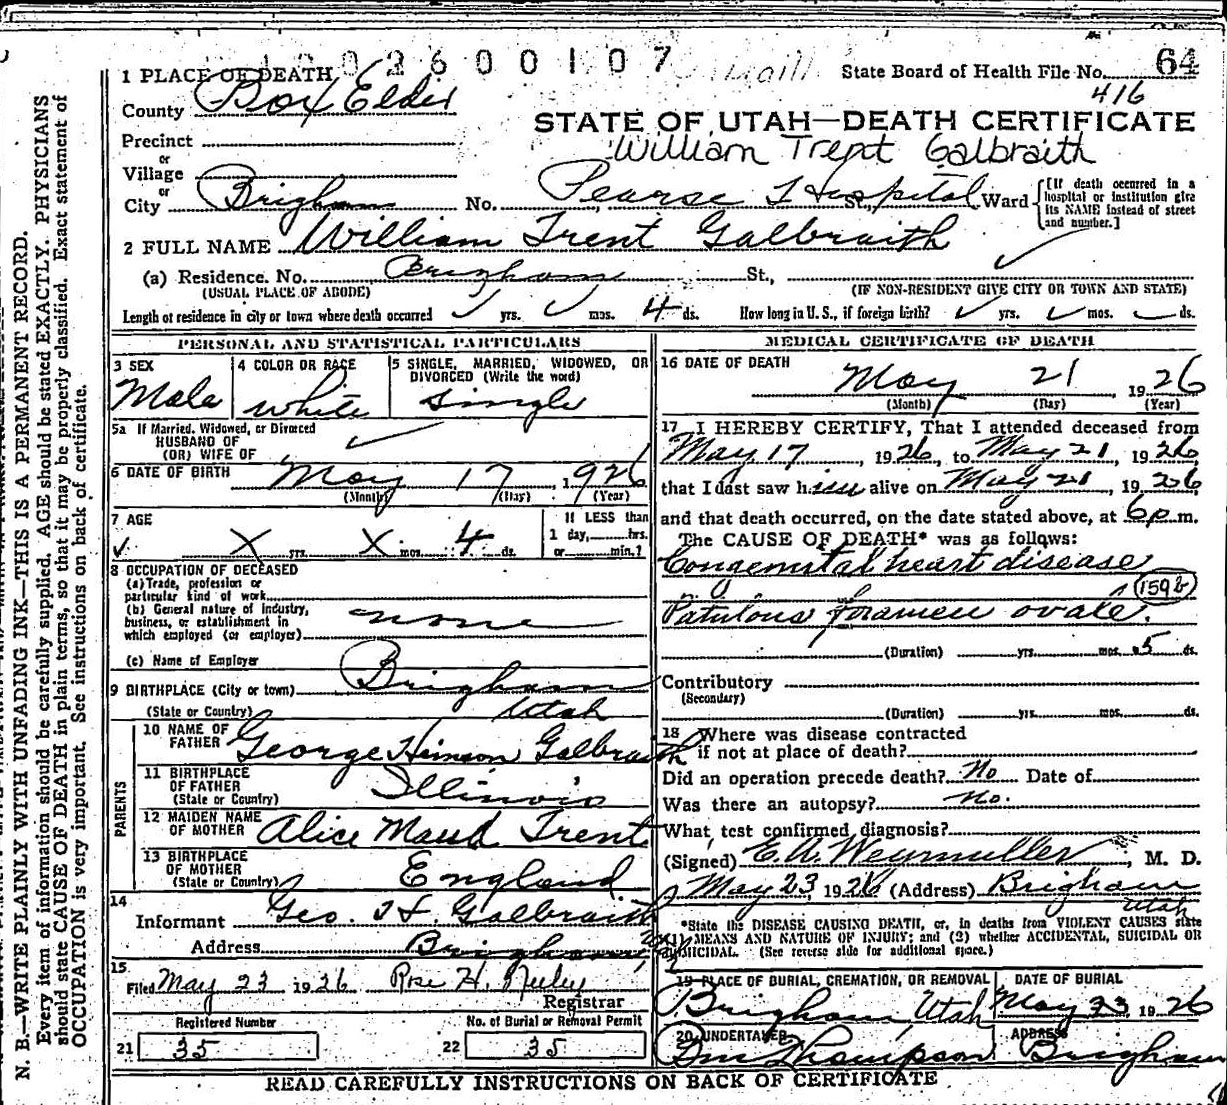 1 PLACE OF DEATH 0 2 6 0 0 1 0 7
State Board of Health File No. 64
416
County Box Elder
STATE OF UTAH—DEATH CERTIFICATE
Precinct
William Trent Galbraith
or
Village
or
City Brigham No. Pearse Hospital St., Ward
[If death occurred in a hospital or institution give its NAME instead of street and number.]
2 FULL NAME William Trent Galbraith
(a) Residence. No. Brigham St.,
(USUAL PLACE OF ABODE) (IF NON-RESIDENT GIVE CITY OR TOWN AND STATE)
Length of residence in city or town where death occurred yrs. mos. 4 ds. How long in U. S., if foreign birth? yrs. mos. ds.
PERSONAL AND STATISTICAL PARTICULARS
3 SEX
Male
4 COLOR OR RACE
White
5 SINGLE, MARRIED, WIDOWED, OR DIVORCED (Write the word)
Single
5a If Married, Widowed, or Divorced
HUSBAND OF
(OR) WIFE OF
6 DATE OF BIRTH May 17, 1926
(Month) (Day) (Year)
7 AGE
X yrs. X mos. 4 ds.
If LESS than
1 day, hrs.
or min.?
8 OCCUPATION OF DECEASED
(a) Trade, profession or
particular kind of work
(b) General nature of industry,
business, or establishment in
which employed (or employer)
none
(c) Name of Employer
9 BIRTHPLACE (City or town) Brigham
(State or Country) Utah
PARENTS
10 NAME OF
FATHER George Galbraith
11 BIRTHPLACE
OF FATHER
(State or Country) Illinois
12 MAIDEN NAME
OF MOTHER Alice Maud Trent
13 BIRTHPLACE
OF MOTHER
(State or Country) England
14
Informant Geo. H. Galbraith
Address Brigham
15
Filed May 23 1926 Rose H. Neeley
Registrar
Registered Number
21 35
No. of Burial or Removal Permit
22 35
MEDICAL CERTIFICATE OF DEATH
16 DATE OF DEATH
May 21 1926
(Month) (Day) (Year)
17 I HEREBY CERTIFY, That I attended deceased from
May 17, 1926, to May 21, 1926
that I last saw him alive on May 21, 1926
and that death occurred, on the date stated above, at 6 p m.
The CAUSE OF DEATH* was as follows:
Congenital heart disease
159b
Patulous foramen ovale.
(Duration) yrs. mos. 5 ds.
Contributory
(Secondary)
(Duration) yrs. mos. ds.
18 Where was disease contracted
if not at place of death?
Did an operation precede death? No Date of
Was there an autopsy? No.
What test confirmed diagnosis?
(Signed) E. A. Weymuller, M. D.
May 23, 1926 (Address) Brigham
Utah
*State the DISEASE CAUSING DEATH, or, in deaths from VIOLENT CAUSES state
(1) MEANS AND NATURE OF INJURY; and (2) whether ACCIDENTAL, SUICIDAL OR
HOMICIDAL. (See reverse side for additional space.)
19 PLACE OF BURIAL, CREMATION, OR REMOVAL
Brigham, Utah
DATE OF BURIAL
May 23, 1926
20 UNDERTAKER
Thompson
ADDRESS
Brigham
READ CAREFULLY INSTRUCTIONS ON BACK OF CERTIFICATE
N. B.—WRITE PLAINLY WITH UNFADING INK—THIS IS A PERMANENT RECORD.
Every item of information should be carefully supplied. AGE should be stated EXACTLY. PHYSICIANS
should state CAUSE OF DEATH in plain terms, so that it may be properly classified. Exact statement of
OCCUPATION is very important. See instructions on back of certificate.